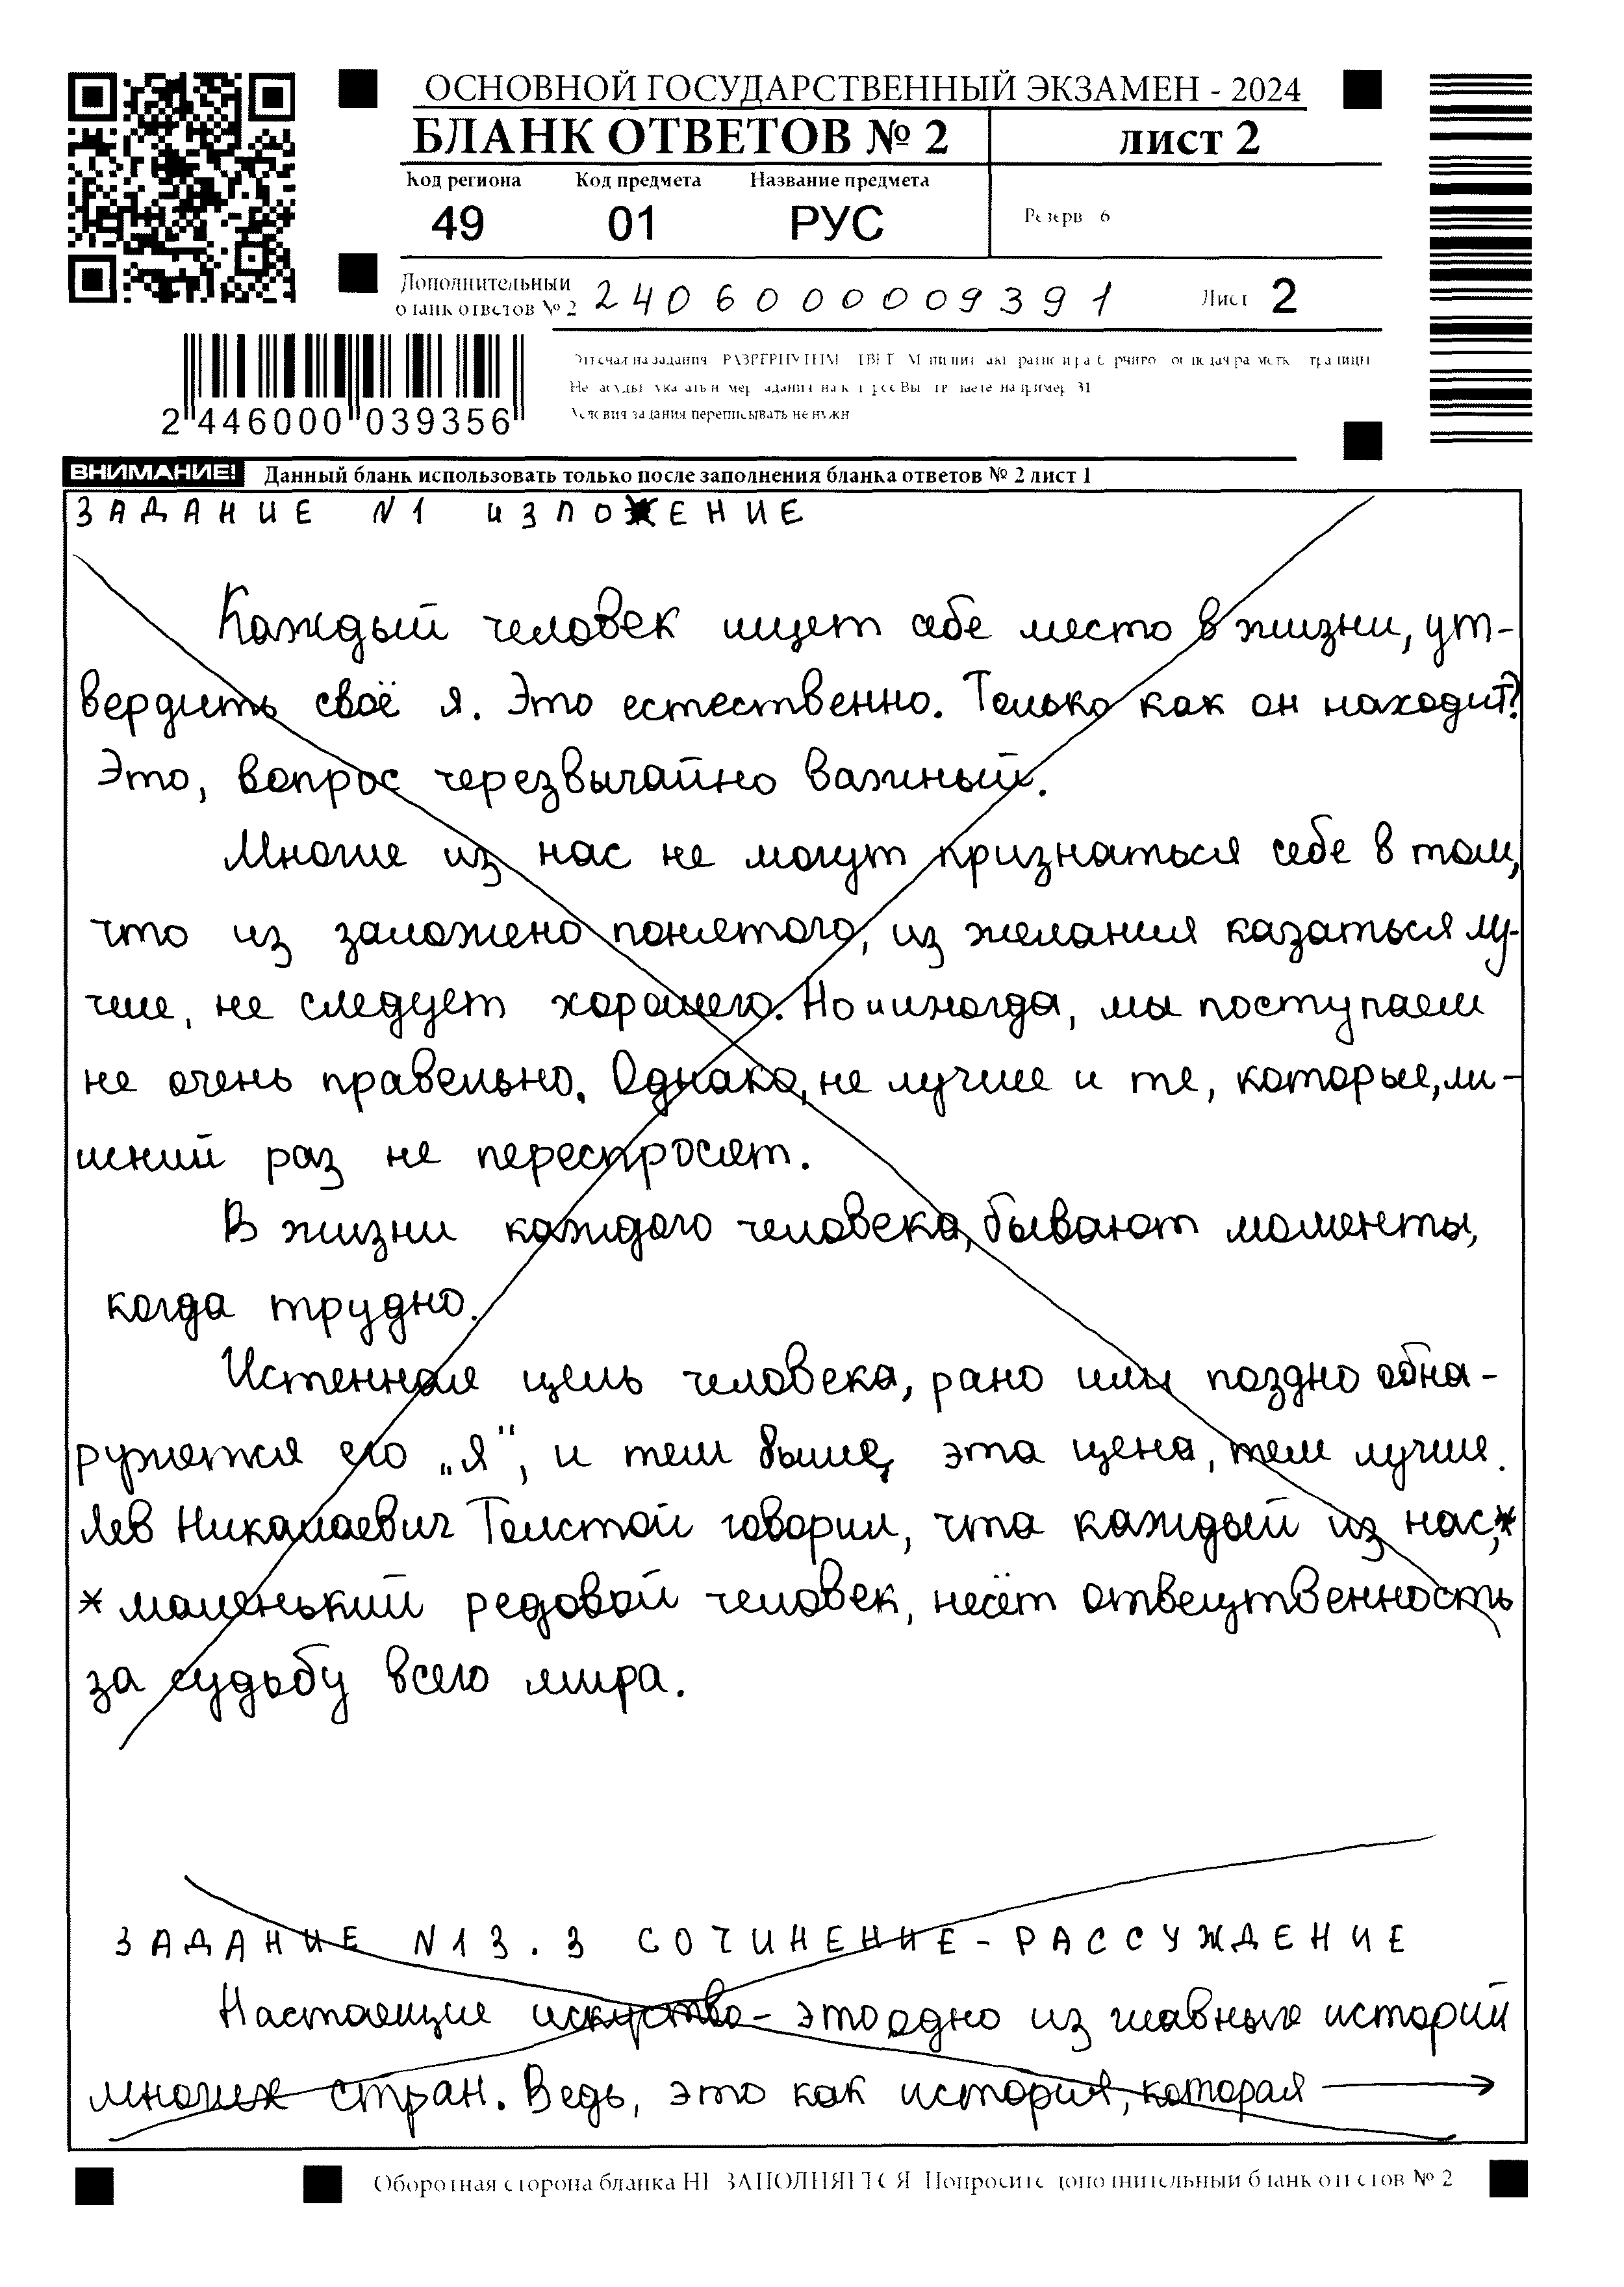 ОСНОВНОЙ ГОСУДАРСТВЕННЫЙ ЭКЗАМЕН - 2024
БЛАНК ОТВЕТОВ № 2 лист 2
Код региона Код предмета Название предмета
49 01 РУС Резерв 6
Дополнительный
бланк ответов № 2 2406000009391 Лист 2
2 446000 039356
Условия задания переписывать не нужн
ВНИМАНИЕ! Данный бланк использовать только после заполнения бланка ответов № 2 лист 1
ЗАДАНИЕ N1 ИЗЛОЖЕНИЕ
Каждый человек ищет себе место в жизни, ут-
вердить своё я. Это естественно. Только как он находит?
Это, вопрос черезвычайно важный.
Многие из нас не могут признаться себе в том,
что из заложено понятого, из желания казаться лу-
чше, не следует хорошего. Но и иногда, мы поступаем
не очень правельно. Однако, не лучше и те, которые, ли-
шний раз не переспросят.
В жизни каждого человека, бывают моменты,
когда трудно.
Истенная цель человека, рано или поздно обна-
ружется его „я", и тем выше, эта цена, тем лучше.
Лев Никалаевич Толстой говорил, что каждый из нас,*
* маленький редовой человек, несёт отвецтвенность
за судьбу всего мира.
ЗАДАНИЕ N13.3 СОЧИНЕНИЕ-РАССУЖДЕНИЕ
Настоящие искуство - это одно из главных историй
многих стран. Ведь, это как история, которая →
Оборотная сторона бланка НЕ ЗАПОЛНЯЕТСЯ Попросите дополнительный бланк ответов № 2